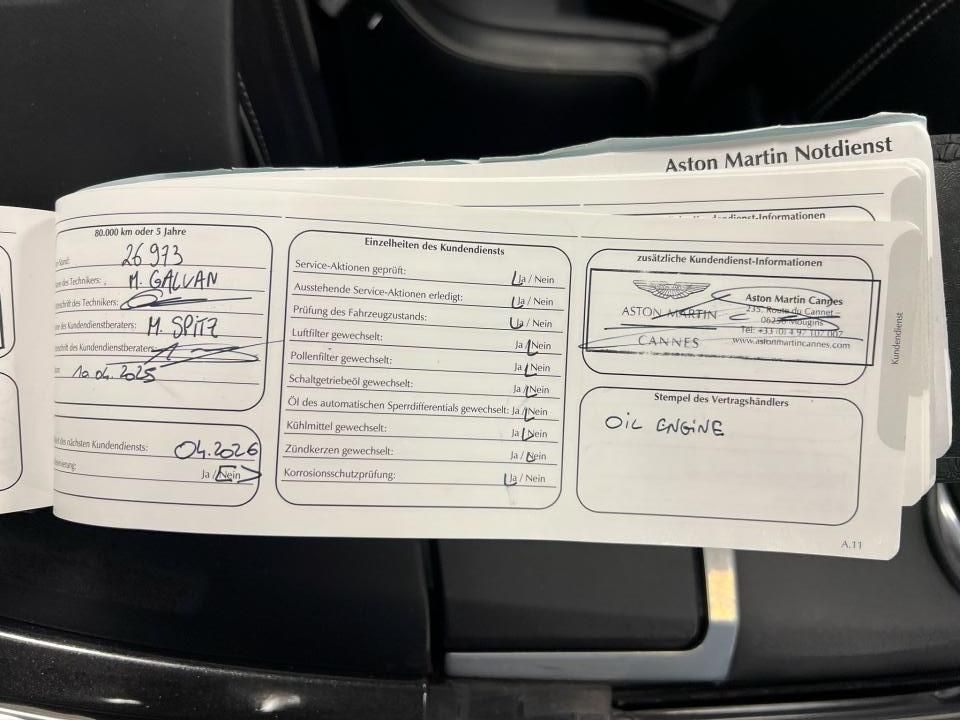 Aston Martin Notdienst
80.000 km oder 5 Jahre
26 973
des Technikers: M. GALVAN
des Technikers:
des Kundendienstberaters: M. SPITZ
des Kundendienstberaters:
10.04.2025
des nächsten Kundendiensts: 04.2026
Ja / Nein
Einzelheiten des Kundendiensts
Service-Aktionen geprüft: Ja / Nein
Ausstehende Service-Aktionen erledigt: Ja / Nein
Prüfung des Fahrzeugzustands: Ja / Nein
Luftfilter gewechselt: Ja / Nein
Pollenfilter gewechselt: Ja / Nein
Schaltgetriebeöl gewechselt: Ja / Nein
Öl des automatischen Sperrdifferentials gewechselt: Ja / Nein
Kühlmittel gewechselt: Ja / Nein
Zündkerzen gewechselt: Ja / Nein
Korrosionsschutzprüfung: Ja / Nein
zusätzliche Kundendienst-Informationen
ASTON MARTIN
CANNES
Aston Martin Cannes
235, Route du Cannet
06250 Mougins
Tel: +33 (0) 4 97 107 007
www.astonmartincannes.com
Stempel des Vertragshändlers
OIL ENGINE
Kundendienst
A.11